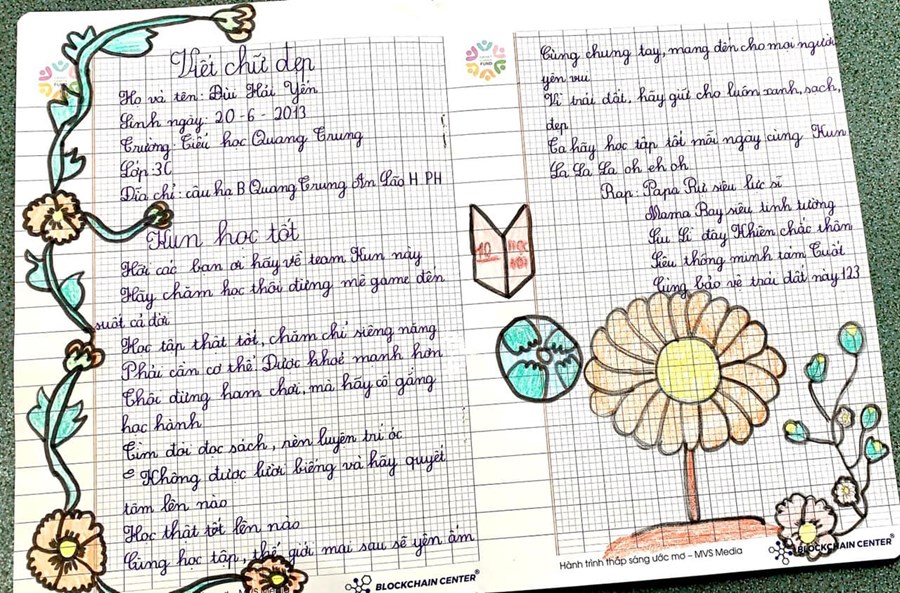 Viết chữ đẹp
Họ và tên: Bùi Hải Yến
Sinh ngày: 20-6-2013
Trường: Tiểu học Quang Trung
Lớp 3C
Địa chỉ: câu hạ B Quang Trung An Lão H PH
Kun học tốt
Hỡi các bạn ơi hãy về team Kun này
Hãy chăm học thôi đừng mê game đến
suốt cả đời
Học tập thật tốt, chăm chỉ siêng năng
Phải cân cơ thể Được khoẻ mạnh hơn
Thôi đừng ham chơi, mà hãy cố gắng
học hành
Tìm đòi đọc sách, rèn luyện trí óc
Không được lười biếng và hãy quyết
tâm lên nào
Học thật tốt lên nào
Cùng học tập, thế giới mai sau sẽ yên ấm
BLOCKCHAIN CENTER®
FUND
Cùng chung tay, mang đến cho mọi người
yên vui
Vì trái đất, hãy giữ cho luôn xanh, sạch,
đẹp
Ta hãy học tập tốt mỗi ngày cùng Kun
La La La oh eh oh
Rap: Papa Rư siêu lực sĩ
Mama Bay siêu tinh tường
Siu Li đây Khiên chắc thôn
Siêu thông minh tám Tuốt
Cùng bảo vệ trái đất này 123
10
học
Hành trình thắp sáng ước mơ – MVS Media
BLOCKCHAIN CENTER®